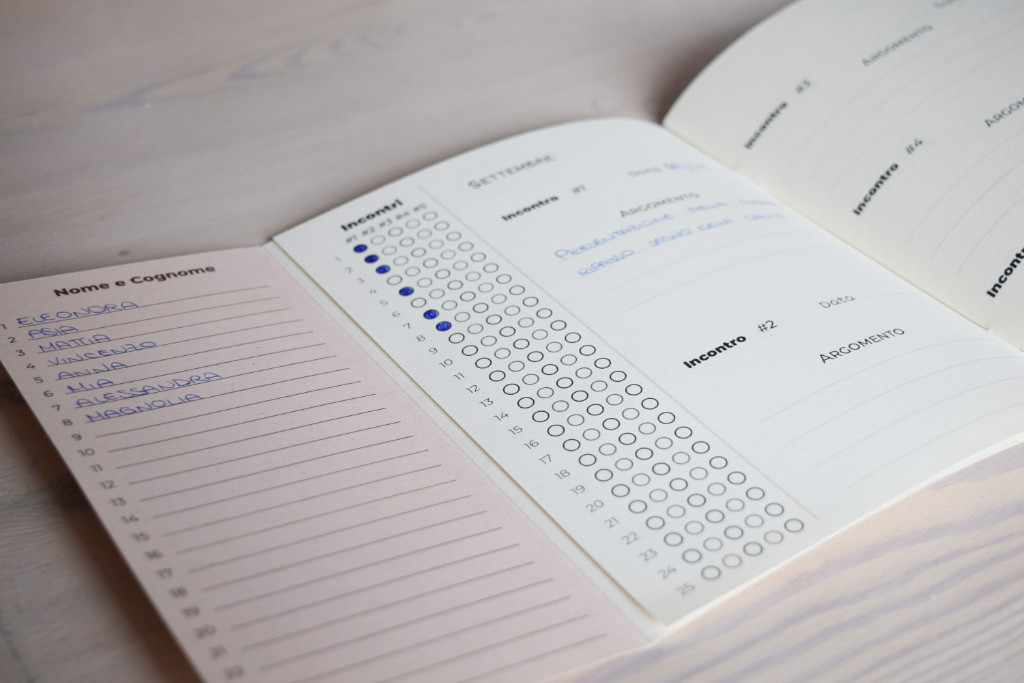 Nome e Cognome
1 ELEONORA
2 ASIA
3 MATTIA
4 VINCENZO
5 ANNA
6 MIA
7 ALESSANDRA
8 MAGNOLIA
9
10
11
12
13
14
15
16
17
18
19
20
21
22
Incontri
#1 #2 #3 #4 #5
1
2
3
4
5
6
7
8
9
10
11
12
13
14
15
16
17
18
19
20
21
22
23
24
25
SETTEMBRE
Incontro #1 Data
ARGOMENTO
PRESENTAZIONE DELLA
SEGNO DELLA CROCE
Incontro #2 Data
ARGOMENTO
Incontro #3
ARGOMENTO
Incontro #4
Incontro